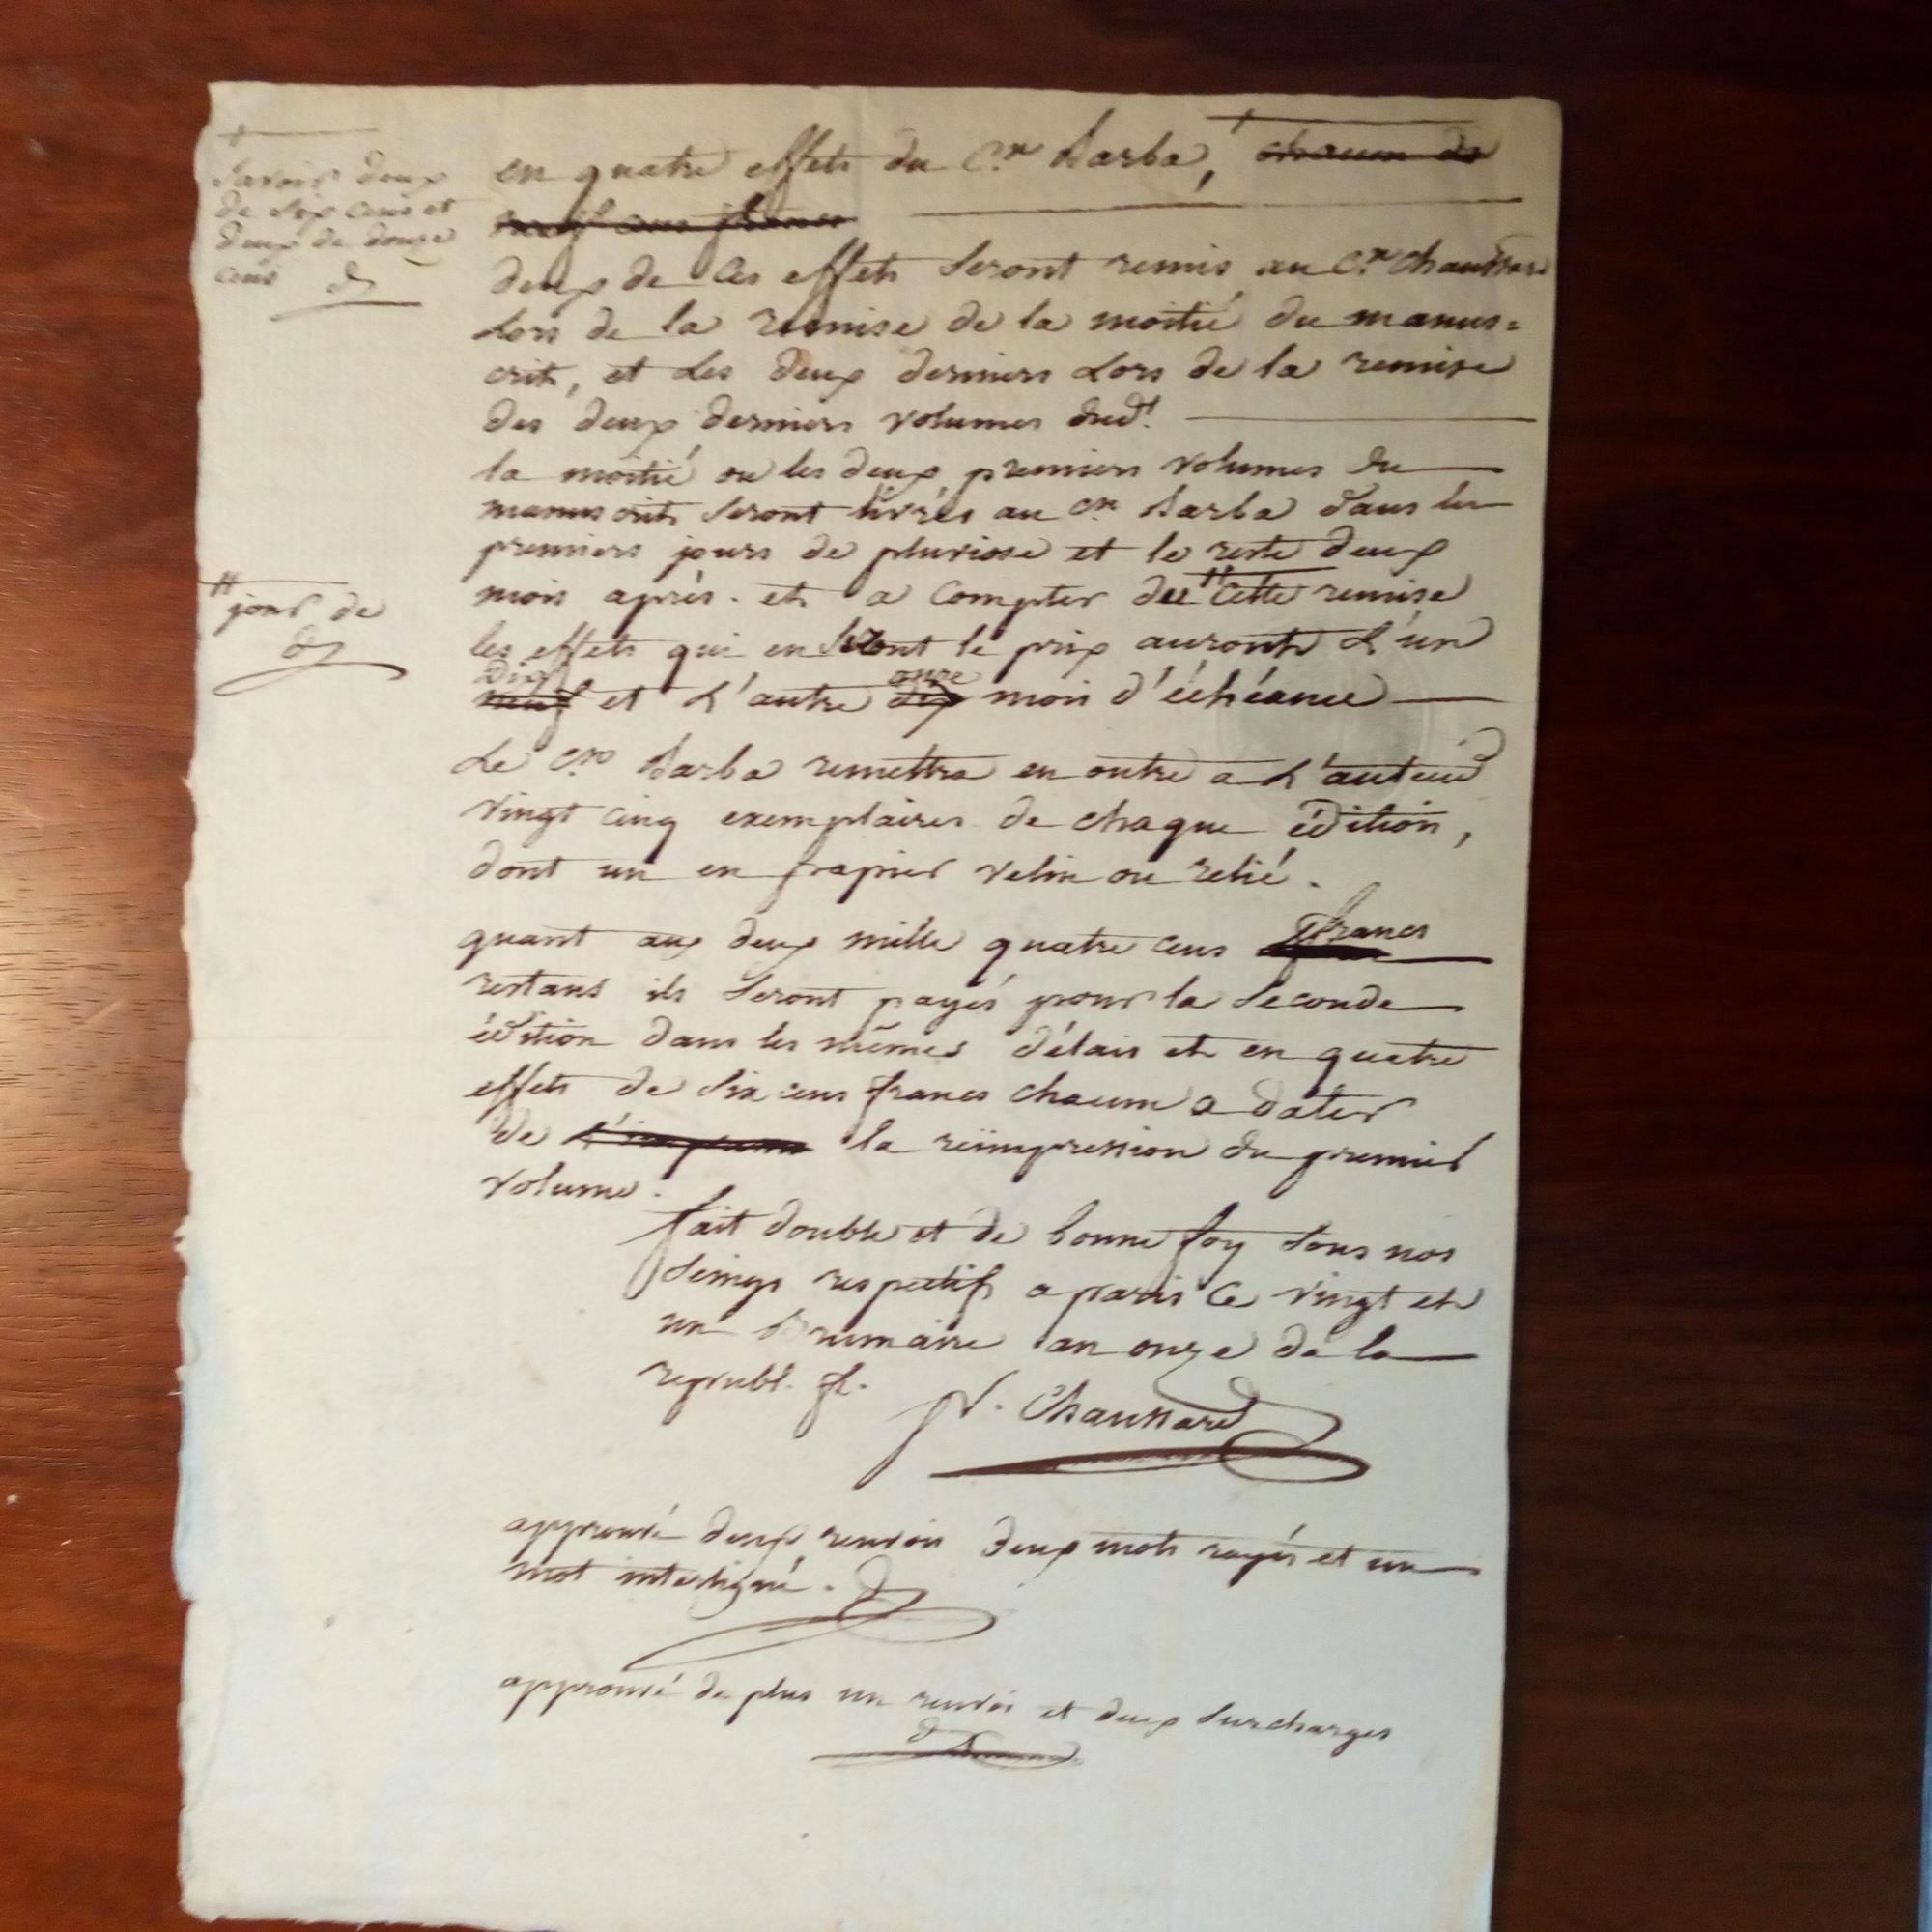 en quatre effets du Cen Barba, + chacun de
neuf cens francs
+
savoir deux
de six cens et
deux de douze
cens
deux de ces effets seront remis au Cen Chaussard
Lors de la remise de la moitié du manus=
crit, et les deux derniers Lors de la remise
des deux derniers volumes dud.t
la moitié ou les deux premiers volumes du
manuscrit seront livrés au Cen Barba dans les
premiers jours de pluviose et le reste deux
mois après. et a compter du # cette remise
# jour de
les effets qui en seront le prix auront L'un
Dix onze
neuf et L'autre dix mois d'échéance
Le Cen Barba remettra en outre a L'auteur
vingt cinq exemplaires de chaque édition,
dont un en papier velin ou relié.
quant aux deux mille quatre cens francs
restans ils seront payés pour la seconde
édition dans les mêmes délais et en quatre
effets de six cens francs chacun a dater
de la reïmpression du premier
volume.
fait double et de bonne foy sous nos
seings respectifs a paris ce vingt et
un Brumaire an onze de la
republ. fr.
P. Chaussard
approuvé deux renvois deux mots rayés et un
mot interligné.
approuvé de plus un renvoi et deux surcharges